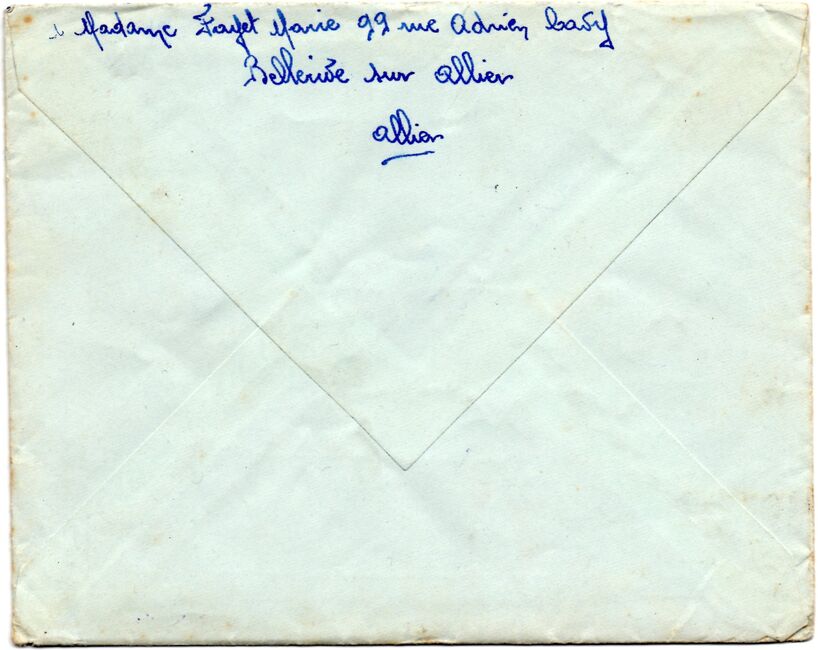 Madame Fayet Marie 22 rue Adrien Cavy
Bellerive sur Allier
Allier